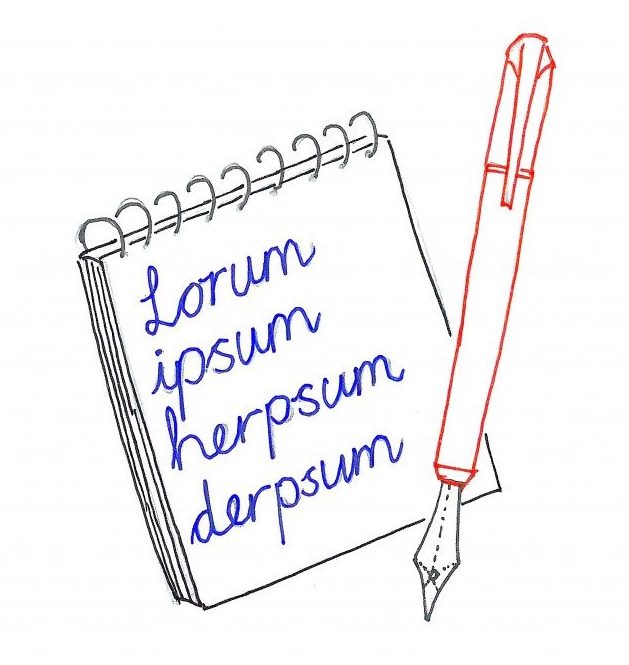 Lorum
ipsum
herpsum
derpsum